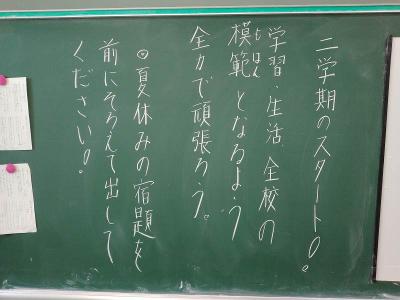 二学期のスタート!
学習・生活、全校の
模範となるよう
もはん
全力で頑張ろう。
◎夏休みの宿題を
前にそろえて出して
ください!